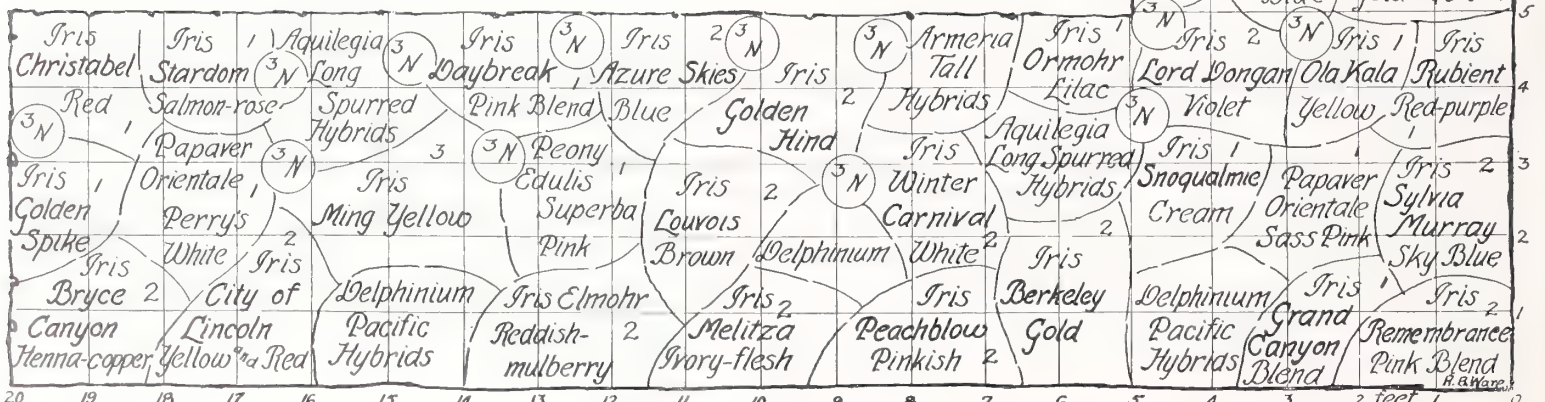 5
Iris
Christabel
Red
1
3
N
Iris
Stardom
Salmon-rose
1
3
N
Aquilegia
Long
Spurred
Hybrids
3
N
Iris
Daybreak
Pink Blend
1
3
N
Iris
Azure Skies
Blue
2
3
N
Iris
Golden
Hind
2
3
N
Armeria
Tall
Hybrids
Iris
Ormohr
Lilac
1
3
N
Iris 2
Lord Dongan
Violet
3
N
Iris 1
Ola Kala
Yellow
Iris
Rubient
Red-purple
1
4
3
N
Iris 1
Golden
Spike
Papaver
Orientale
Perry's
White
1
3
N
3
Iris
Ming Yellow
3
N
Peony
Edulis
Superba
Pink
1
Iris
Louvois
Brown
2
3
N
Delphinium
Iris
Winter
Carnival
White 2
Aquilegia
Long Spurred
Hybrids
1
3
N
Iris 1
Snoqualmie
Cream
Papaver
Orientale
Sass Pink
1
Iris 2
Sylvia
Murray
Sky Blue
3
2
Iris
Bryce 2
Canyon
Henna-copper
2
Iris
City of
Lincoln
Yellow and Red
Delphinium
Pacific
Hybrids
Iris Elmohr
Reddish-
mulberry
2
Iris 2
Melitza
Ivory-flesh
Iris
Peachblow
Pinkish 2
2
Iris
Berkeley
Gold
Delphinium
Pacific
Hybrids
Iris 1
Grand
Canyon
Blend
Iris 2
Remembrance
Pink Blend
R.B. Ware
1
20 19 18 17 16 15 14 13 12 11 10 9 8 7 6 5 4 3 2 feet 1 0